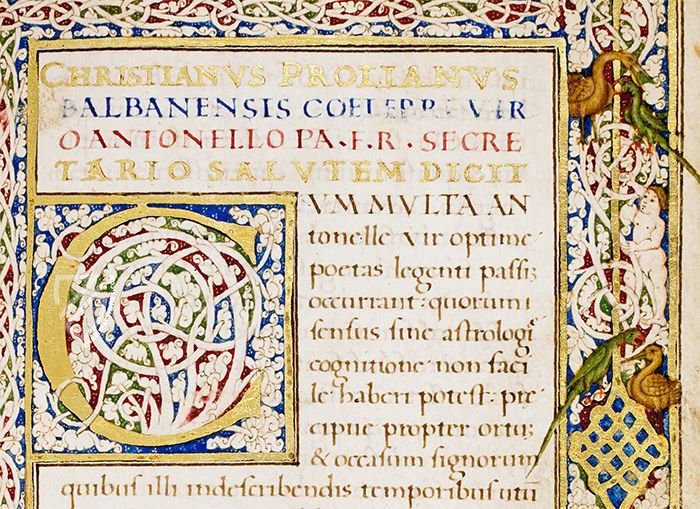 CHRISTIANVS PROLIANVS
BALBANENSIS COELEPRE VIR
O ANTONELLO PA · F · R · SECRE
TARIO SALVTEM DICIT
CVM MVLTA AN
tonelle vir optime
poetas legenti passiȝ
occurrant: quorum
sensus sine astrologi
cognitione non faci
le haberi potest: pre
cipue propter ortuȝ
& occasum signorum
quibus illi indescribendis temporibus utu